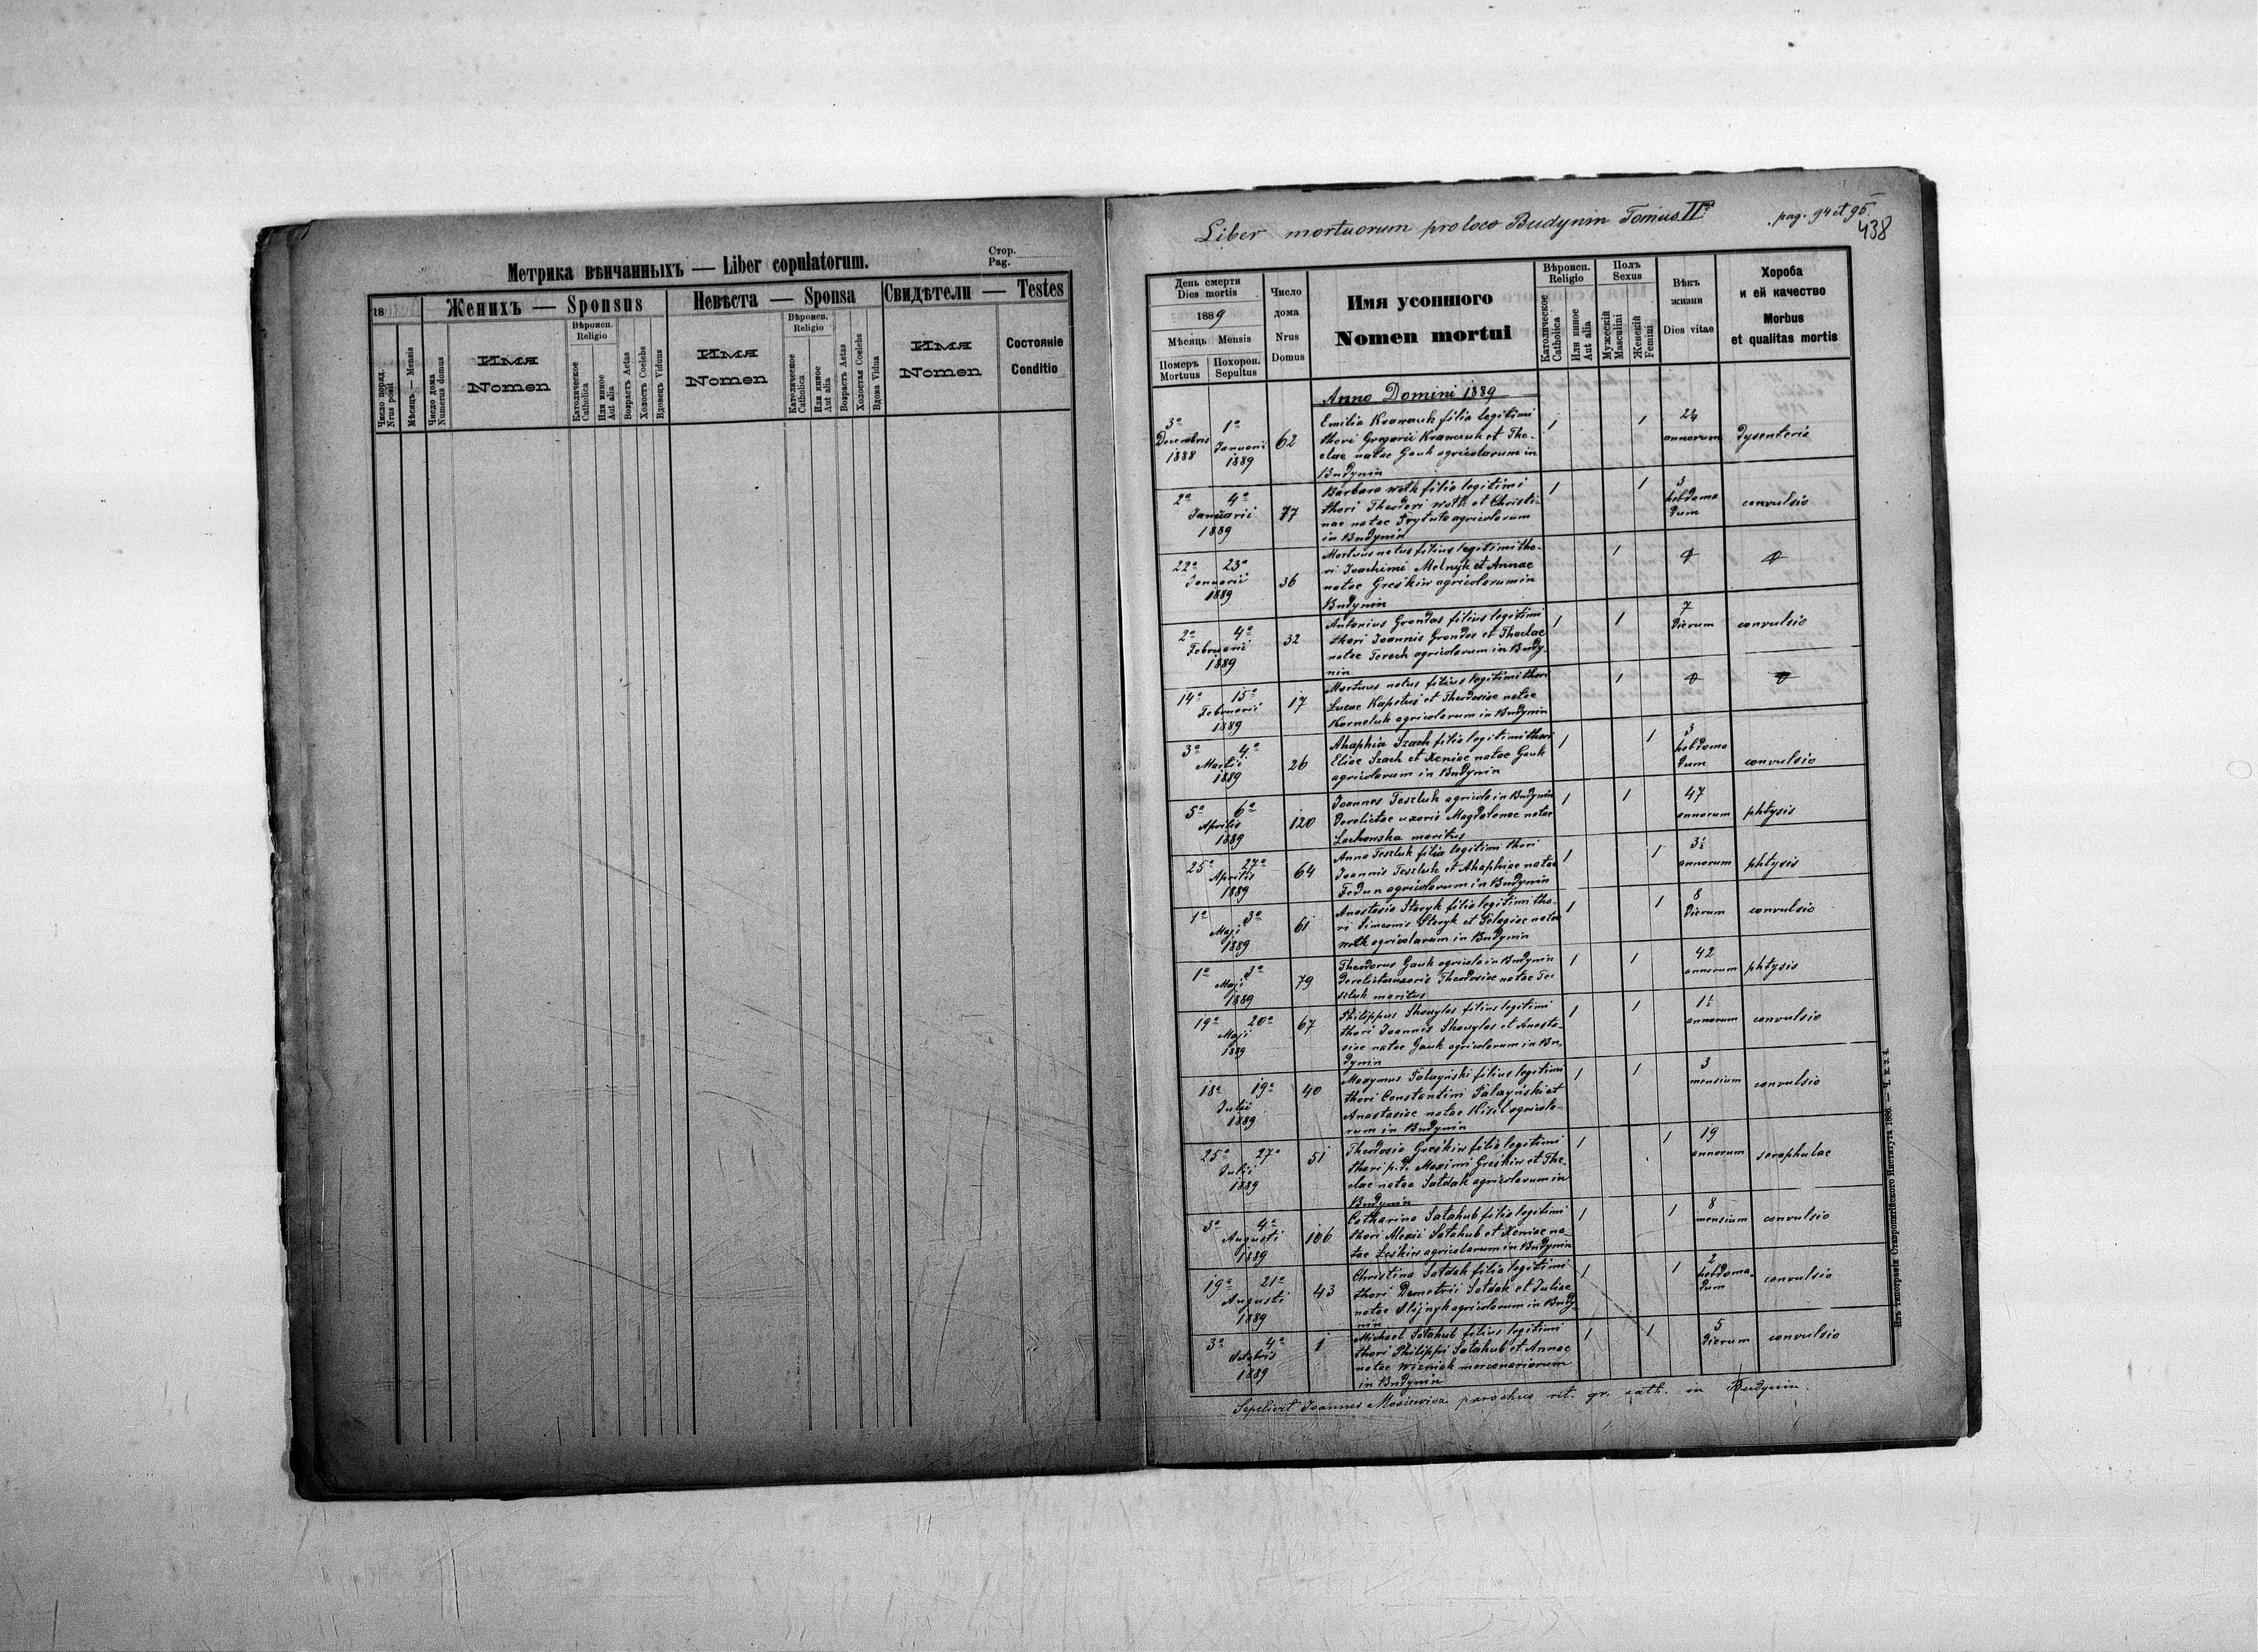 Метрика вѣнчанныхъ — Liber copulatorum.
Стор.
Pag.
18
Женихъ — Sponsus
Невѣста — Sponsa
Свидѣтели — Testes
Число поряд.
Nrus posit
Мѣсяць — Mensis
Число дома
Numerus domus
Имя
Nomen
Вѣроисп.
Religio
Католическое
Catholica
Или инное
Aut alia
Возрастъ Aetas
Холостъ Coelebs
Вдовець Viduus
Имя
Nomen
Вѣроисп.
Religio
Католическое
Catholica
Или инное
Aut alia
Возрастъ Aetas
Холостая Coelebs
Вдова Vidua
Имя
Nomen
Состояніе
Conditio
Liber mortuorum pro loco Budynin Tomus II
pag. 94 et 95
438
День смерти
Dies mortis
1889
Мѣсяць Mensis
Померъ
Mortuus
Похорон.
Sepultus
Число
дома
Nrus
Domus
Имя усопшого
Nomen mortui
Вѣроисп.
Religio
Католическое
Catholica
Или инное
Aut alia
Полъ
Sexus
Мужескій
Masculini
Женскій
Femini
Вѣкъ
жизни
Dies vitae
Хороба
и ей качество
Morbus
et qualitas mortis
Anno Domini 1889
3a Decembris 1888
1a Januarii 1889
62
Emilia Krawczuk filia legitimi
thori Gregorii Krawczuk et The-
clae natae Gauk agricolarum in
Budynin
1 1
24 annorum
dysenteria
2a 4a Januarii 1889
77
Barbara Wotk filia legitimi
thori Theodori Wotk et Christi-
nae natae agricolarum
in Budynin
1 1
3 hebdoma
dum
convulsio
22a 23a Januarii 1889
36
Mortuus natus filius legitimi tho-
ri Joachimi Melnyk et Annae
natae Greśkiw agricolarum in
Budynin
1
2a 4a Februarii 1889
32
Antonius Grondas filius legitimi
thori Joannis Grondas et Theclae
natae Terech agricolarum in Budy-
nin
1 1
7 dierum
convulsio
14a 15a Februarii 1889
17
Mortuus natus filius legitimi thori
Lucae Kapeluś et Theodosiae natae
Korneluk agricolarum in Budynin
1
3a 4a Martii 1889
26
Ahaphia Szach filia legitimi thori
Eliae Szach et Xeniae natae Gauk
agricolarum in Budynin
1 1
3 hebdoma
dum
convulsio
5a 6a Aprilis 1889
120
Joannes Teszluk agricola in Budynin
derelictae uxoris Magdalenae natae
Lachowska maritus
1 1
47 annorum
phtysis
25a 27a Aprilis 1889
64
Anna Teszluk filia legitimi thori
Joannis Teszluk et Ahaphiae natae
Fedun agricolarum in Budynin
1 1
annorum
phtysis
1a 3a Maji 1889
61
Anastasia Staryk filia legitimi tho-
ri Simeonis Staryk et Pelagiae natae
Wotk agricolarum in Budynin
1 1
8 dierum
convulsio
1a 3a Maji 1889
79
Theodorus Gauk agricola in Budynin
derelictae uxoris Theodosiae natae Te-
szluk maritus
1 1
42 annorum
phtysis
19a 20a Maji 1889
67
Philippus filius legitimi
thori Joannis et Anasta-
siae natae Gauk agricolarum in Bu
dynin
1 1
annorum
convulsio
18a 19a Julii 1889
40
Maxymus filius legitimi
thori Constantini et
Anastasiae natae Kisil agricola-
rum in Budynin
1 1
3 mensium
convulsio
25a 27a Julii 1889
51
Theodosia Greśkiw filia legitimi
thori p.d. Maximi Greśkiw et The-
clae natae Sałdak agricolarum in
Budynin
1 1
19 annorum
scrophulae
3a 4a Augusti 1889
106
Catharina Sałahub filia legitimi
thori Alexii Sałahub et Xeniae na-
tae Leśkiw agricolarum in Budynin
1 1
8 mensium
convulsio
19a 21a Augusti 1889
43
Christina Sałdak filia legitimi
thori Demetrii Sałdak et Juliae
natae Olijnyk agricolarum in Budy-
nin
1 1
2 hebdoma-
dum
convulsio
3a 4a Octobris 1889
1
Michael Sałahub filius legitimi
thori Philippi Sałahub et Annae
natae Wizniak mercenariorum
in Budynin
1 1
5 dierum
convulsio
Sepelivit Joannes Mosiewicz parochus rit. gr. cath. in Budynin.
Изъ типографіи Ставропигійского Института 1886. — Ч. в. з. 4.